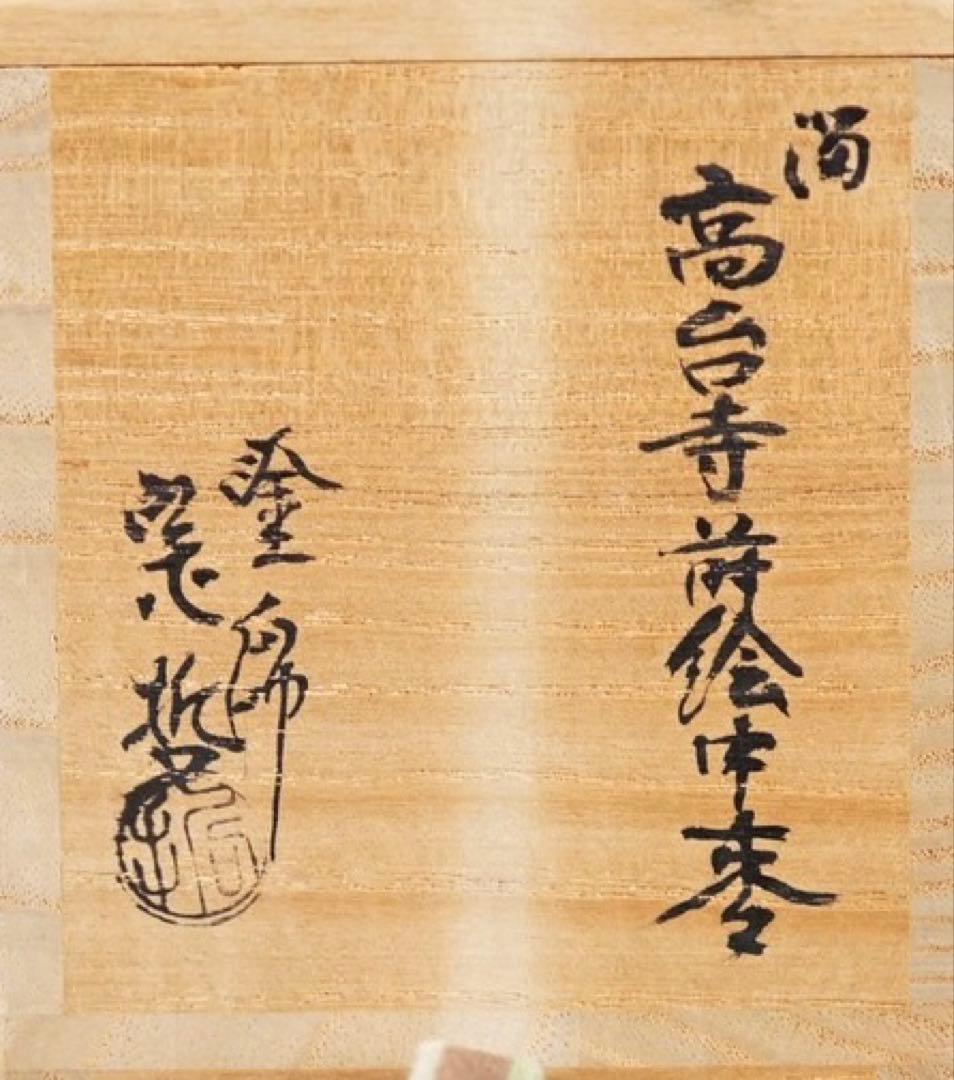 溜
高台寺蒔絵中棗
塗師
哲